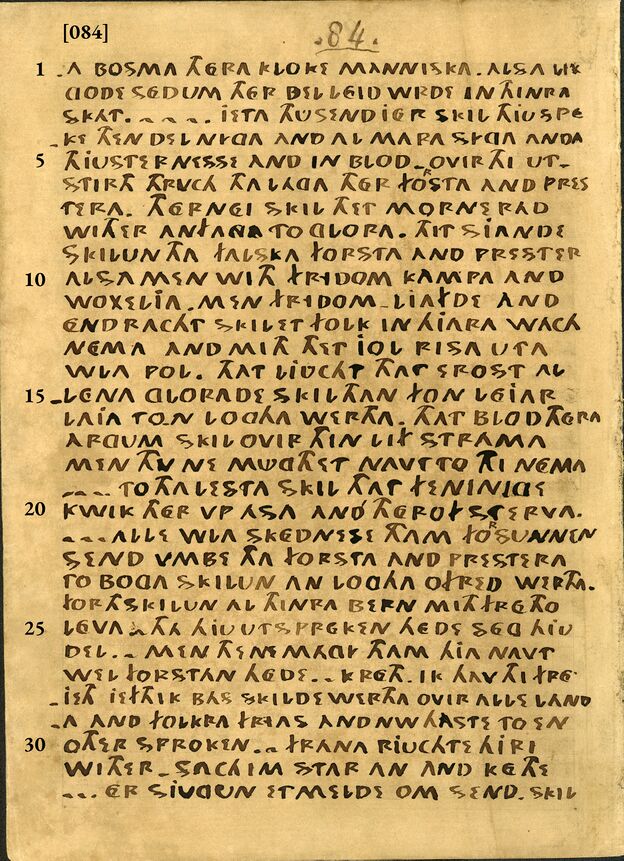 [084]
.84.
1 .A BOSMA THERA KLOKE MANNISKA. ALSA LIK
GODE SEDUM THER BELLEID WRDE IN THINRA
SKAT. .... IETA THUSEND IER SKIL THIU SPE
.KE THEN DEL NIGA AND AL MARA SIGA ANDA
5 THIUSTERNESSE AND IN BLOD. OVIR THI UT-
STIRTH THRUCH THA LAGA THER FORSTA AND PRES
TERA. THERNEI SKIL THET MORNERAD
WITHER ANFANGA TO GLORA. THIT SIANDE
SKILUN THA FALSKA FORSTA AND PRESTER
10 ALSAMEN WITH FRIDOM KAMPA AND
WOXELIA. MEN FRIDOM. LIAFDE AND
ENDRACHT SKIL ET FOLK IN HIARA WACH
NEMA AND MITH THET IOL RISA UTA
WLA POL. THAT LIUCHT THAT EROST AL
15 .LENA GLORADE SKIL THAN FON LEIAR
LAIA TO.N LOGHA WERTHA. THAT BLOD THERA
ARGUM SKIL OVIR THIN LIF STRAMA
MEN THU NE MUGTHET NAVT TO THI NEMA
.... TO THA LESTA SKIL THAT FENINIGE
20 KWIK THER VP ASA AND THEROF STERVA.
... ALLE WLA SKEDNESE THAM FORSUNNEN
SEND VMBE THA FORSTA AND PRESTERA
TO BOGA SKILUN AN LOGHA OFRED WERTHA.
FORTH SKILUN AL THINRA BERN MITH FRETHO
25 LEVA. THA HIU UTSPREKEN HEDE SEG HIU
DEL... MEN THENE MAGI THAM HIA NAVT
WEL FORSTAN HEDE.. KRETH. IK HAV THI FRE-
.IETH IEFTH IK BAS SKILDE WERTHA OVIR ALLE LAND
.A AND FOLKRA FRIAS AND NW HASTE TO EN
30 OTHER SPROKEN... FRANA RIUCHTE HIRI
WITHER. SACH IM STAR AN AND KETHE
... ER SIUGUN ETMELDE OM SEND. SKIL